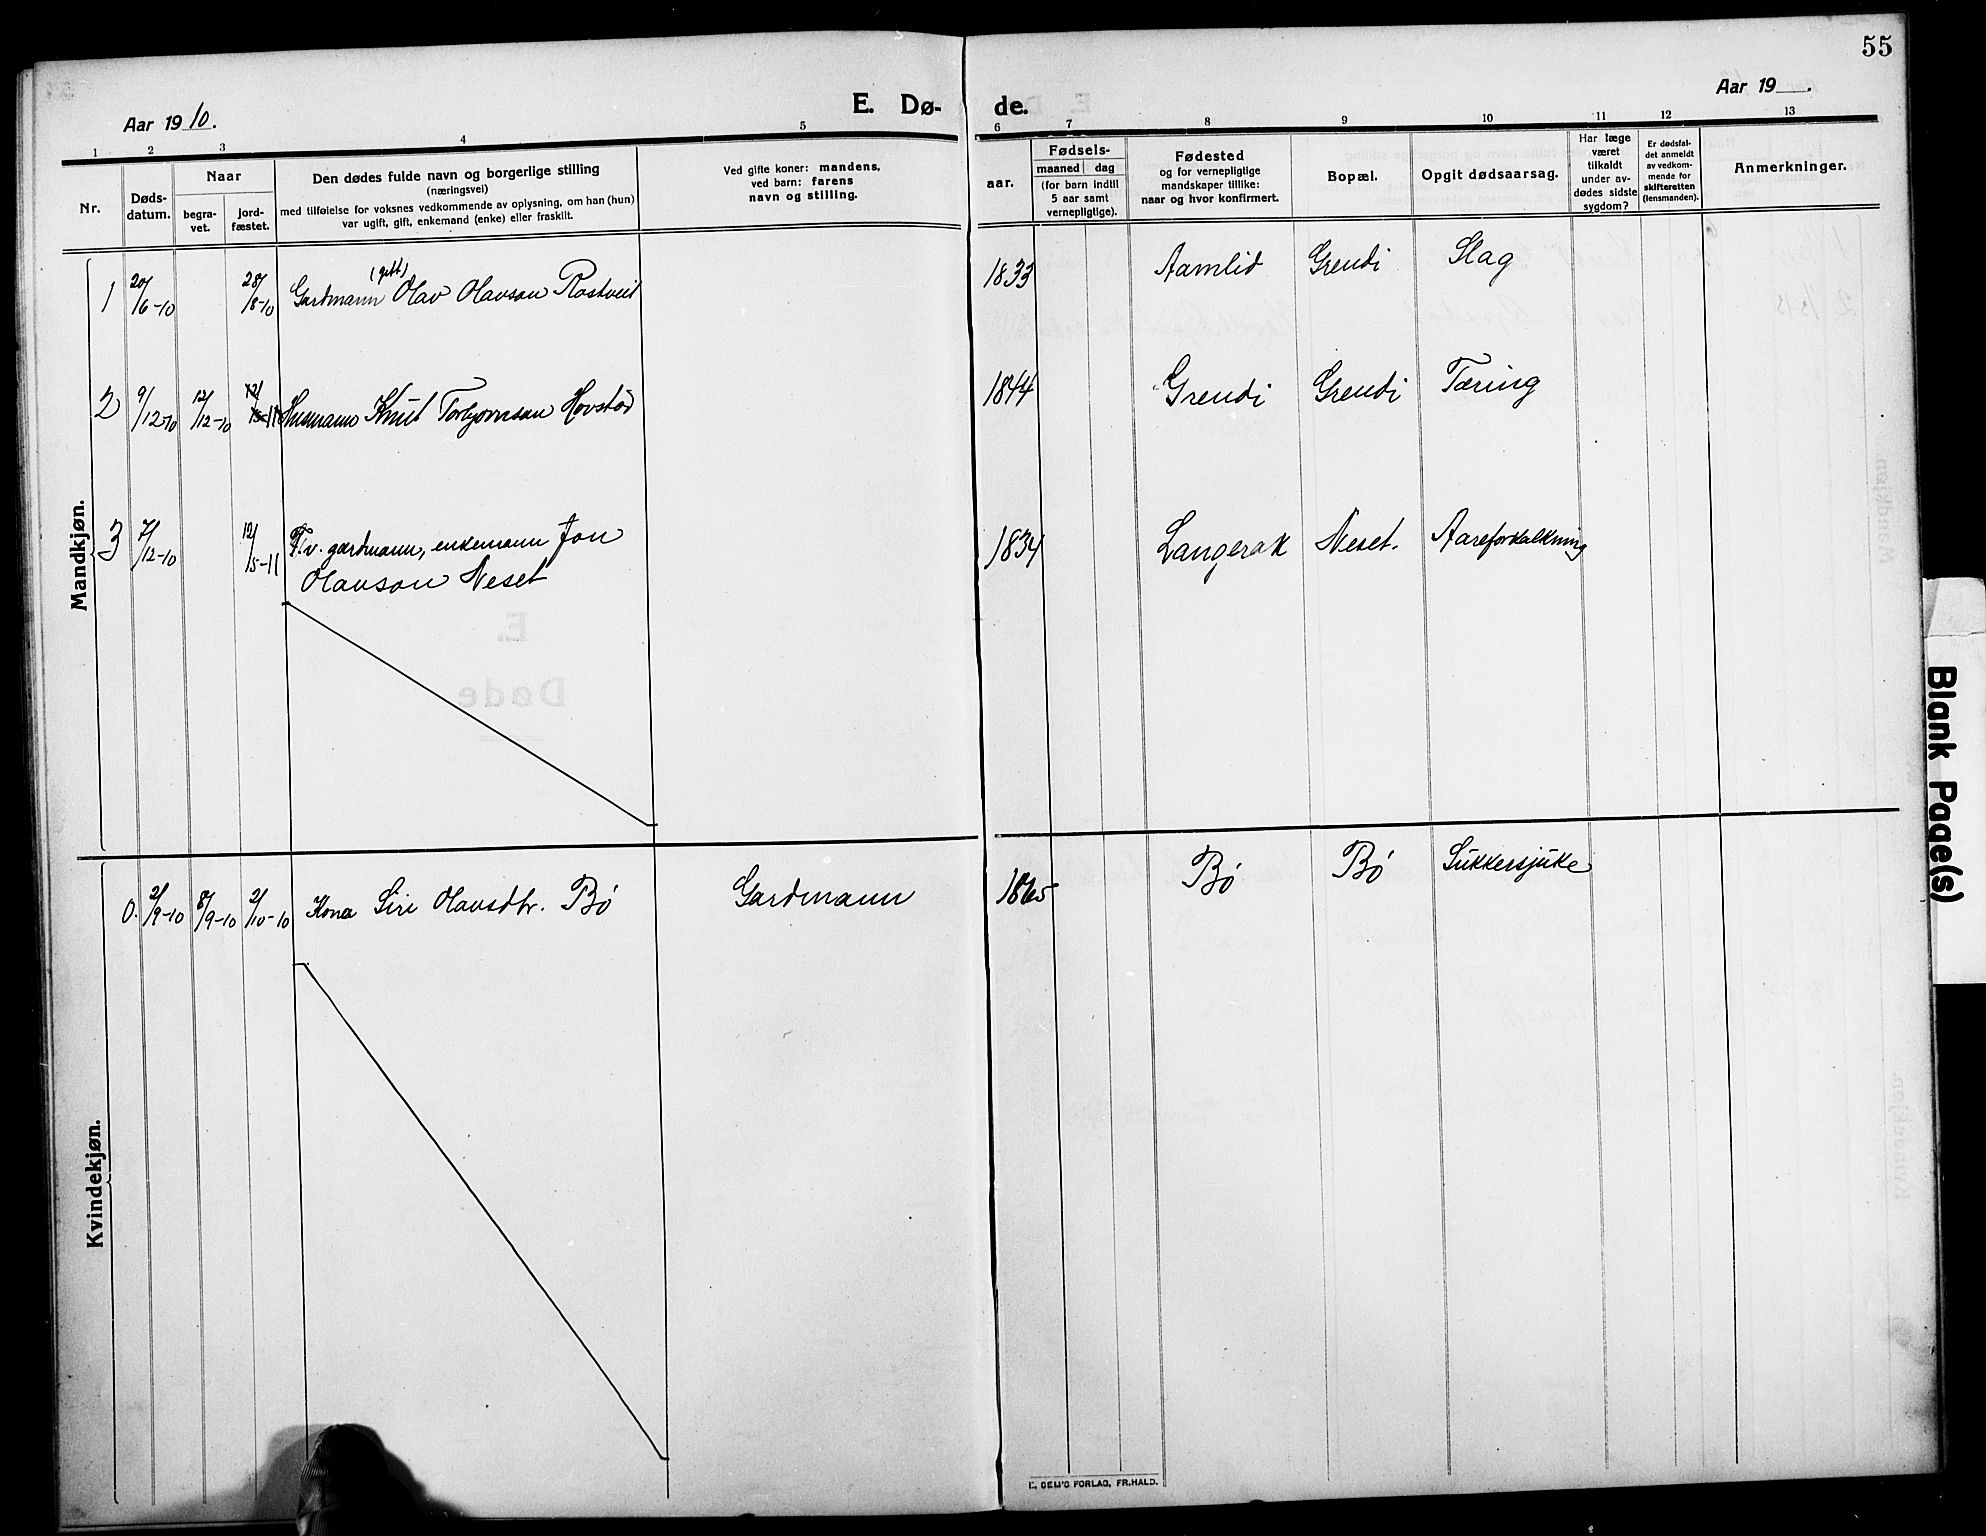 55
Aar 1910.
E. Dø-
de.
Aar 19 .
1 2 3 4 5 6 7 8 9 10 11 12 13
Nr.
Døds-
datum.
Naar
begra-
vet.
jord-
fæstet.
Den dødes fulde navn og borgerlige stilling
(næringsvei)
med tilføielse for voksnes vedkommende av oplysning, om han (hun)
var ugift, gift, enkemand (enke) eller fraskilt.
Ved gifte koner: mandens,
ved barn: farens
navn og stilling.
Fødsels-
aar.
maaned dag
(for barn indtil
5 aar samt
vernepligtige).
Fødested
og for vernepligtige
mandskaper tillike:
naar og hvor konfirmert.
Bopæl.
Opgit dødsaarsag.
Har læge
været
tilkaldt
under av-
dødes sidste
sygdom?
Er dødsfal-
det anmeldt
av vedkom-
mende for
skifteretten
(lensmanden).
Anmerkninger.
Mandkjøn.
1 20/6-10 28/8-10 Gardmann (gift) Olav Olavson Rostveit 1833 Aamlid Grendi Slag
2 9/12-10 12/12-10 12/5-11 Husmann Knut Torbjørnson Hovstød 1844 Grendi Grendi Tæring
3 7/12-10 12/5-11 F.v. gardmann, enkemann Jon 1834 Langerak Neset. Aareforkalkning
Olavson Neset
E.
Døde
Kvindekjøn.
0. 2/9-10 8/9-10 2/10-10 Kona Siri Olavsdtr. Bø Gardmann 1865 Bø Bø Sukkersjuke
E. SEM'S FORLAG, FR.HALD.
Blank Page(s)